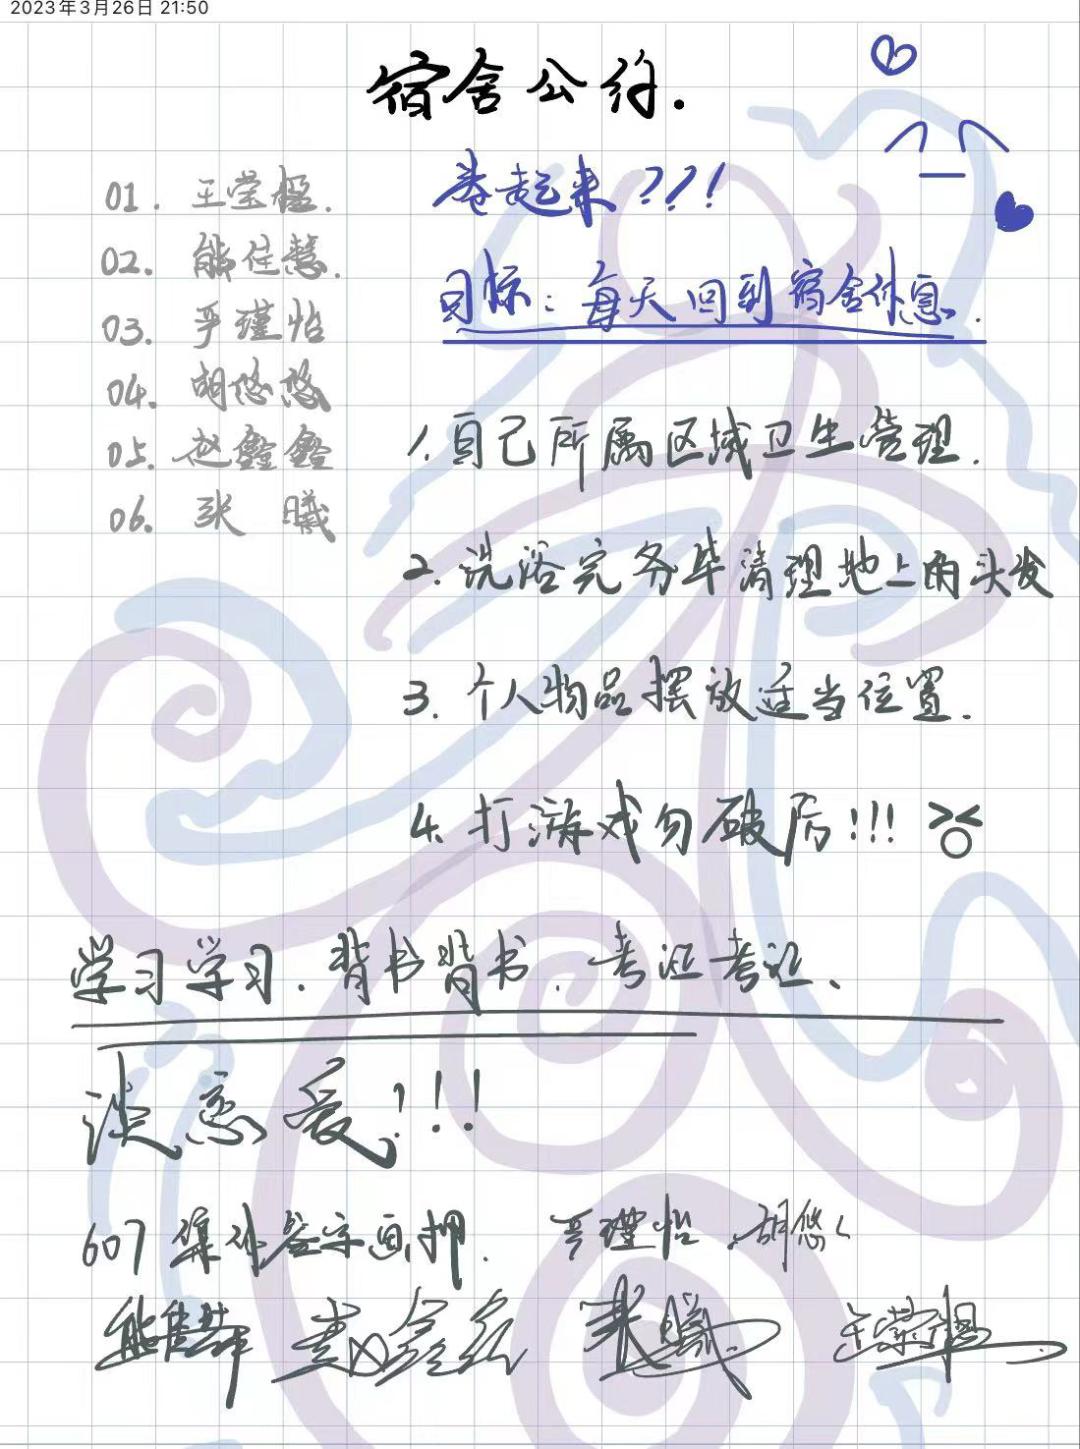 2023年3月26日 21:50
宿舍公约.
卷起来???!
目标: 每天回到宿舍休息.
01. 王莹楹.
02. 熊佳慧.
03. 严瑾怡
04. 胡悠悠
05. 赵鑫鑫
06. 张 曦
1. 自己所属区域卫生管理.
2. 洗浴完务毕清理地上的头发
3. 个人物品摆放适当位置.
4. 打游戏勿破厉!!!
学习学习. 背书背书. 考证考证、
谈恋爱!!!
607 集体签字画押. 严瑾怡 胡悠悠
熊佳慧 赵鑫鑫 张曦 王莹楹